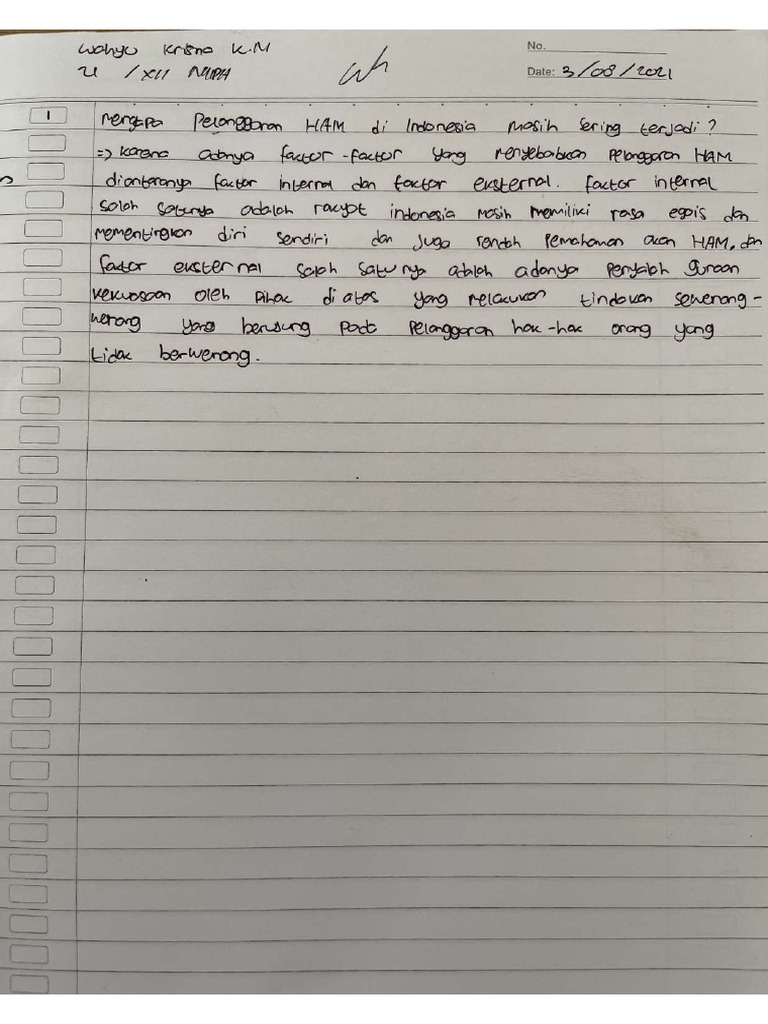 Wahyu Krisna K.M
No.
21 / XII MIPA
Wh
Date: 3/08/2021
1
Mengapa Pelanggaran HAM di Indonesia masih sering terjadi?
=> Karena adanya factor-factor yang menyebabkan Pelanggaran HAM
diantaranya factor internal dan factor eksternal. factor internal
salah satunya adalah rakyat indonesia masih memiliki rasa egois dan
mementingkan diri sendiri dan juga rendah Pemahaman akan HAM, dan
factor eksternal salah satunya adalah adanya Penyalah gunaan
kekuasaan oleh Pihak di atas yang melakukan tindakan sewenang-
wenang yang berujung pada pelanggaran hak-hak orang yang
tidak berwenang.